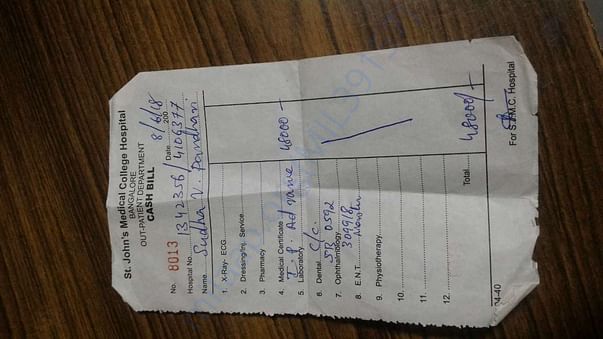 St. John's Medical College Hospital
BANGALORE
OUT-PATIENT DEPARTMENT
CASH BILL
No. 8013 Date 8/6/18 200
Hospital No. 1342356/4109377
Name Sudha V. Pandhari
1. X-Ray- ECG
2. Dressing/Inj. Service
3. Pharmacy
4. Medical Certificate
I.P. Advance 48000 –
5. Laboratory
6. Dental C/C.
SB 0592
7. Ophthalmology
309918
8. E.N.T.
9. Physiotherapy
10.
11.
12.
Total 48000/-
04-40
For S.J.M.C. Hospital